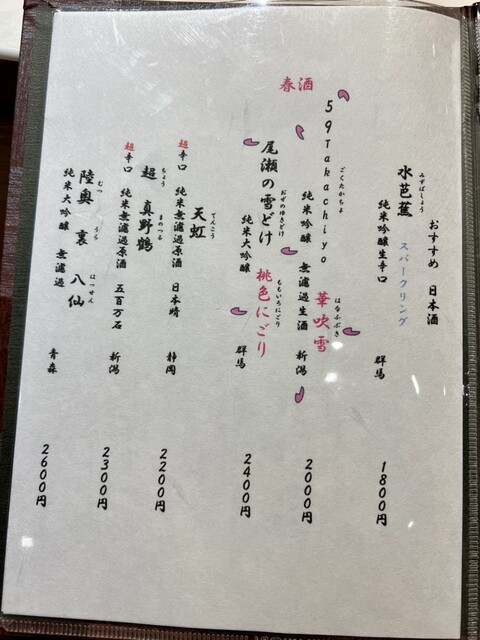 おすすめ 日本酒
みずばしょう
水芭蕉 スパークリング
純米吟醸生辛口 群馬 1800円
春酒
ごくたかちよ はなふぶき
59Takachiyo 華吹雪
純米吟醸 無濾過生酒 新潟 2000円
おぜのゆきどけ ももいろにごり
尾瀬の雪どけ 桃色にごり
純米大吟醸 群馬 2400円
てんこう
天虹
超辛口 純米無濾過原酒 日本晴 静岡 2200円
ちょう まのつる
超 真野鶴
超辛口 純米無濾過原酒 五百万石 新潟 2300円
むつ うら はっせん
陸奥 裏 八仙
純米大吟醸 無濾過 青森 2600円